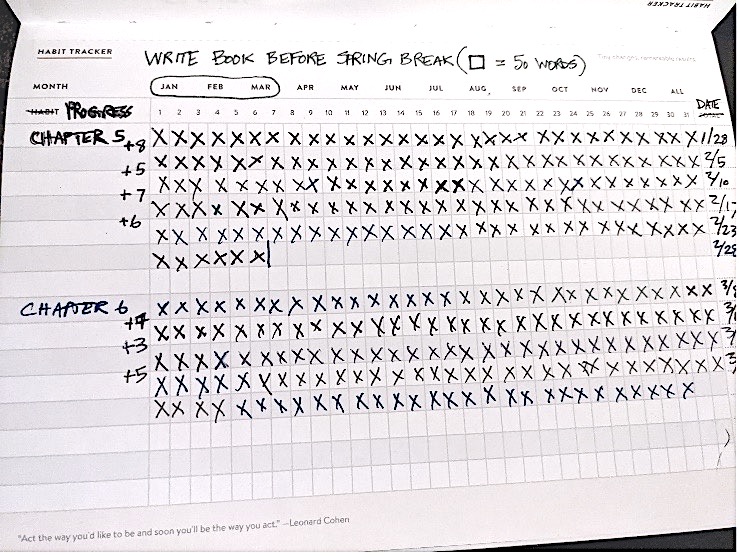 HABIT TRACKER
HABIT TRACKER
WRITE BOOK BEFORE SPRING BREAK (□ = 50 WORDS)
MONTH JAN FEB MAR APR MAY JUN JUL AUG SEP OCT NOV DEC ALL
HABIT PROGRESS 1 2 3 4 5 6 7 8 9 10 11 12 13 14 15 16 17 18 19 20 21 22 23 24 25 26 27 28 29 30 31 DATE
CHAPTER 5 X X X X X X X X X X X X X X X X X X X X X X X X X X X X X X X 1/28
+8 X X X X X X X X X X X X X X X X X X X X X X X X X X X X X X X 2/5
+5 X X X X X X X X X X X X X X X X X X X X X X X X X X X X X X X 2/10
+7 X X X X X X X X X X X X X X X X X X X X X X X X X X X X X X X 2/17
+6 X X X X X X X X X X X X X X X X X X X X X X X X X X X X X X X 2/23
X X X X X X 2/28
CHAPTER 6 X X X X X X X X X X X X X X X X X X X X X X X X X X X X X X X
X X X X X X X X X X X X X X X X X X X X X X X X X X X X X X X
+3 X X X X X X X X X X X X X X X X X X X X X X X X X X X X X X X
+5 X X X X X X X X X X X X X X X X X X X X X X X X X X X X X X X
X X X X X X X X X X X X X X X X X X X X X X X X X X X X X X X
"Act the way you'd like to be and soon you'll be the way you act." —Leonard Cohen